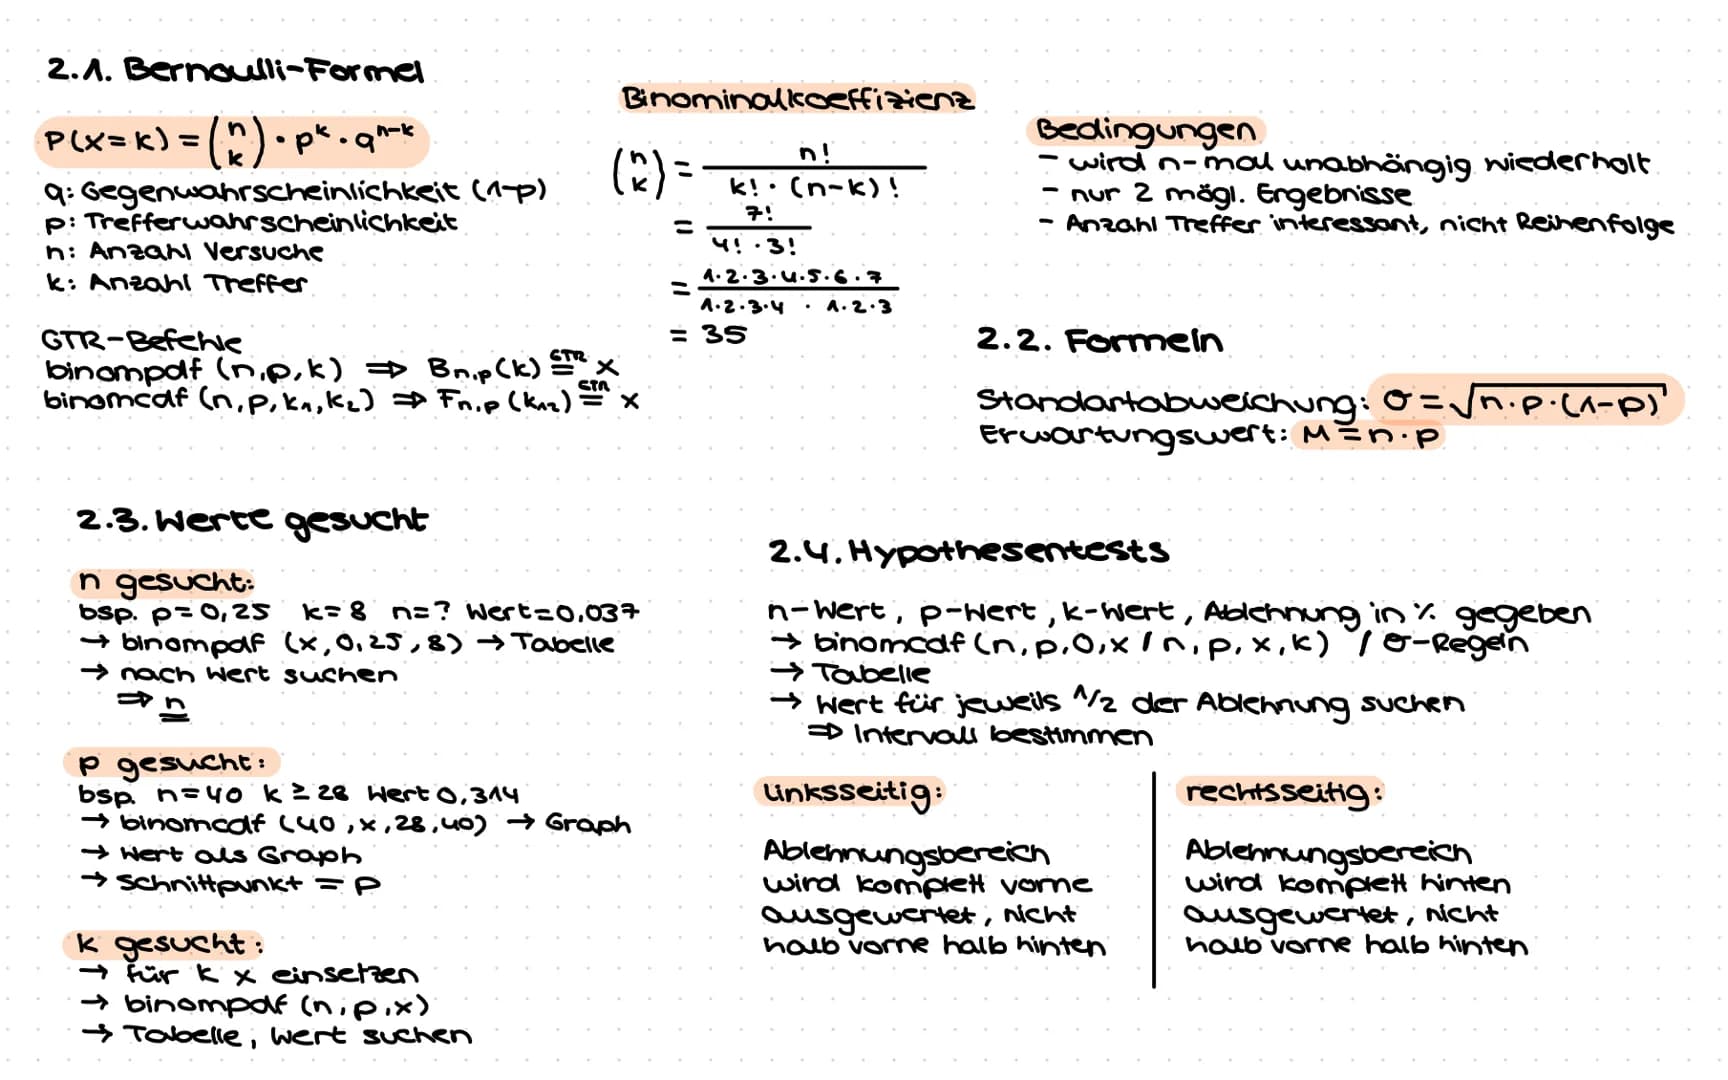 2.1. Bernoulli-Formel
P(X=k) = (n k) · p^k · q^n-k
q: Gegenwahrscheinlichkeit (1-p)
p: Trefferwahrscheinlichkeit
n: Anzahl Versuche
k: Anzahl Treffer
GTR-Befehle
binompdf (n,p,k) ⇒ Bn,p(k) =GTR x
binomcdf (n,p,k1,k2) ⇒ Fn,p(k1,2) =GTR x
Binominalkoeffizienz
(n k) = n! / k! · (n-k)!
= 7! / 4! · 3!
= 1·2·3·4·5·6·7 / 1·2·3·4 · 1·2·3
= 35
Bedingungen
- wird n-mal unabhängig wiederholt
- nur 2 mögl. Ergebnisse
- Anzahl Treffer interessant, nicht Reihenfolge
2.2. Formeln
Standartabweichung: σ = √n·p·(1-p)
Erwartungswert: M = n·p
2.3. Werte gesucht
n gesucht:
bsp. p=0,25 k=8 n=? Wert=0,037
→ binompdf (x,0,25,8) → Tabelle
→ nach Wert suchen
⇒ n
p gesucht:
bsp. n=40 k≥28 Wert 0,314
→ binomcdf (40,x,28,40) → Graph
→ Wert als Graph
→ Schnittpunkt = p
k gesucht:
→ für k x einsetzen
→ binompdf (n,p,x)
→ Tabelle, Wert suchen
2.4. Hypothesentests
n-Wert, p-Wert, k-Wert, Ablehnung in % gegeben
→ binomcdf (n,p,0,x / n,p,x,k) / σ-Regeln
→ Tabelle
→ Wert für jeweils 1/2 der Ablehnung suchen
⇒ Intervall bestimmen
linksseitig:
Ablehnungsbereich
wird komplett vorne
ausgewertet, nicht
halb vorne halb hinten
rechtsseitig:
Ablehnungsbereich
wird komplett hinten
ausgewertet, nicht
halb vorne halb hinten